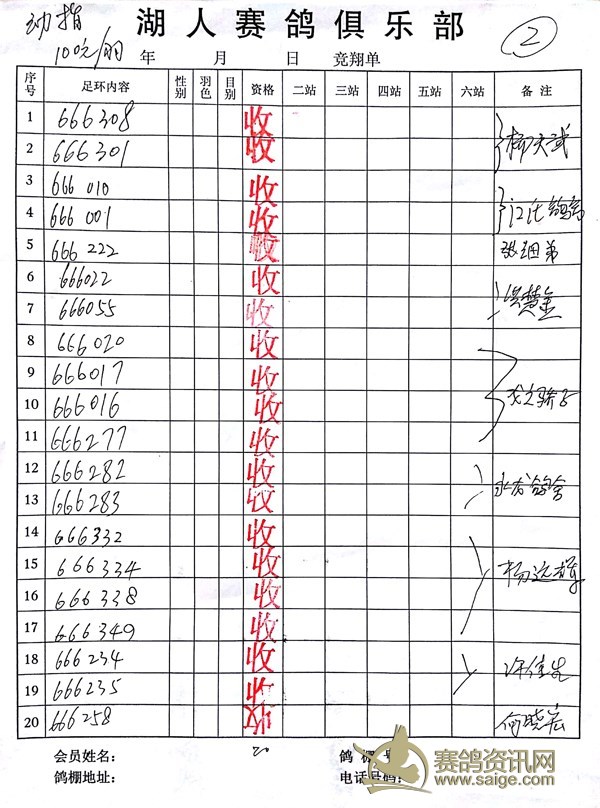 湖人赛鸽俱乐部
幼指
②
10元/羽
年 月 日 竞翔单
序号 足环内容 性别 羽色 目别 资格 二站 三站 四站 五站 六站 备注
1 666308 收
2 666301 收
3 666 010 收
4 666 001 收
5 666 222 收
6 666022 收
7 666055 收
8 666020 收
9 666017 收
10 666016 收
11 666277 收
12 666282 收
13 666283 收
14 666332 收
15 666334 收
16 666338 收
17 666349 收
18 666234 收 许佳先
19 666235 收
20 666258 收 何晓宏
会员姓名： 20 鸽棚
鸽棚地址： 电话号码：
赛鸽资讯网
www.saige.com